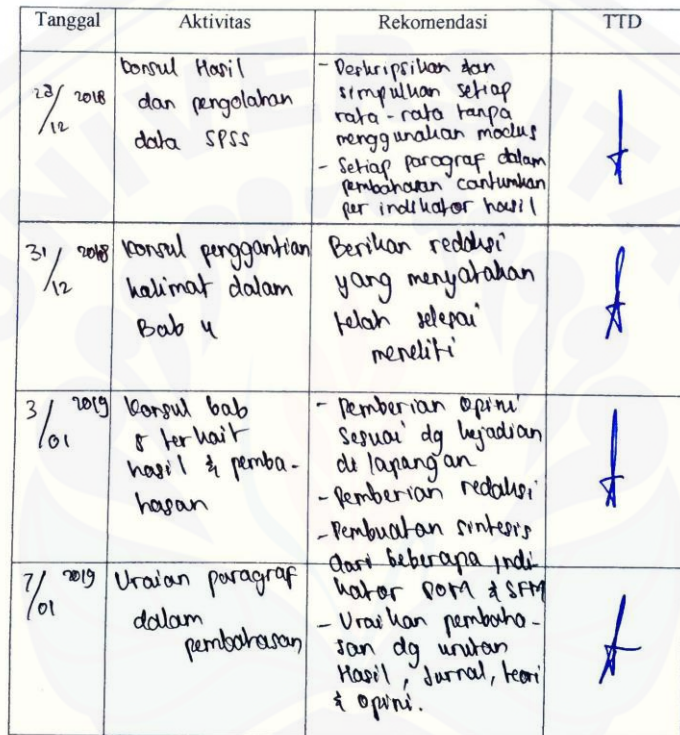 Tanggal Aktivitas Rekomendasi TTD
28/12 2018
Konsul Hasil
dan pengolahan
data SPSS
- Deskripsikan dan
simpulkan setiap
rata-rata tanpa
menggunakan modus
- Setiap paragraf dalam
pembahasan cantumkan
per indikator hasil
31/12 2018
Konsul penggantian
kalimat dalam
Bab 4
Berikan redaksi
yang menyatakan
telah selesai
meneliti
3/01 2019
Konsul bab
5 terkait
hasil & pemba-
hasan
- Pemberian opini
sesuai dg kejadian
di lapangan
- Pemberian redaksi
- Pembuatan sintesis
dari beberapa indi
kator POM & SFM
7/01 2019
Uraian paragraf
dalam
pembahasan
- Uraikan pembaha-
san dg urutan
Hasil, Jurnal, teori
& opini.